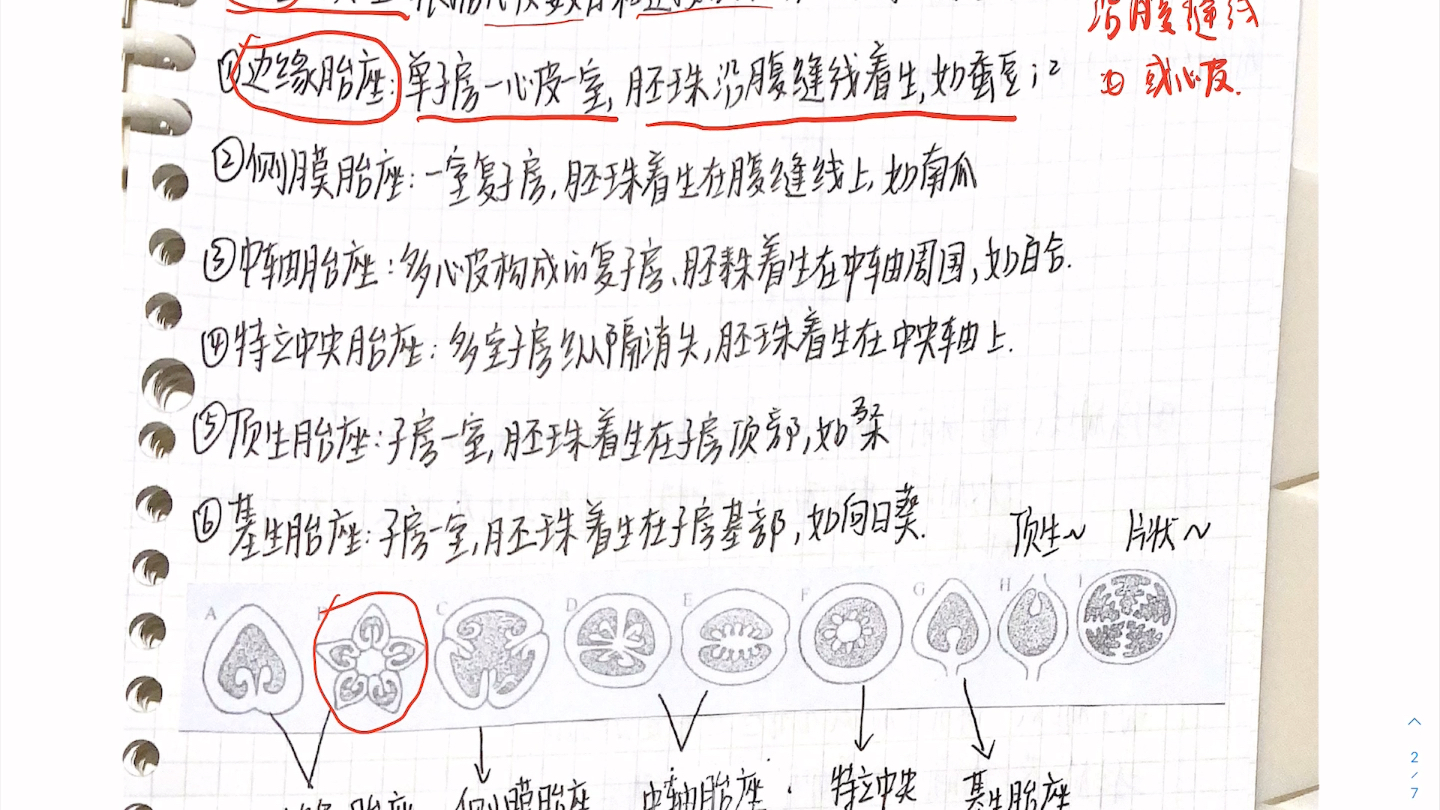 沿腹缝线
或心皮.
①边缘胎座:单子房一心皮一室,胚珠沿腹缝线着生,如蚕豆;
②侧膜胎座:一室复子房,胚珠着生在腹缝线上,如南瓜
③中轴胎座:多心皮构成的复子房、胚珠着生在中轴周围,如百合.
④特立中央胎座:多室子房纵隔消失,胚珠着生在中央轴上.
⑤顶生胎座:子房一室,胚珠着生在子房顶部,如桑
⑥基生胎座:子房一室,胚珠着生在子房基部,如向日葵.
顶生~ 片状~
A C D E F G H I
胎座 侧膜胎座 中轴胎座. 特立中央 基生胎座
2/7